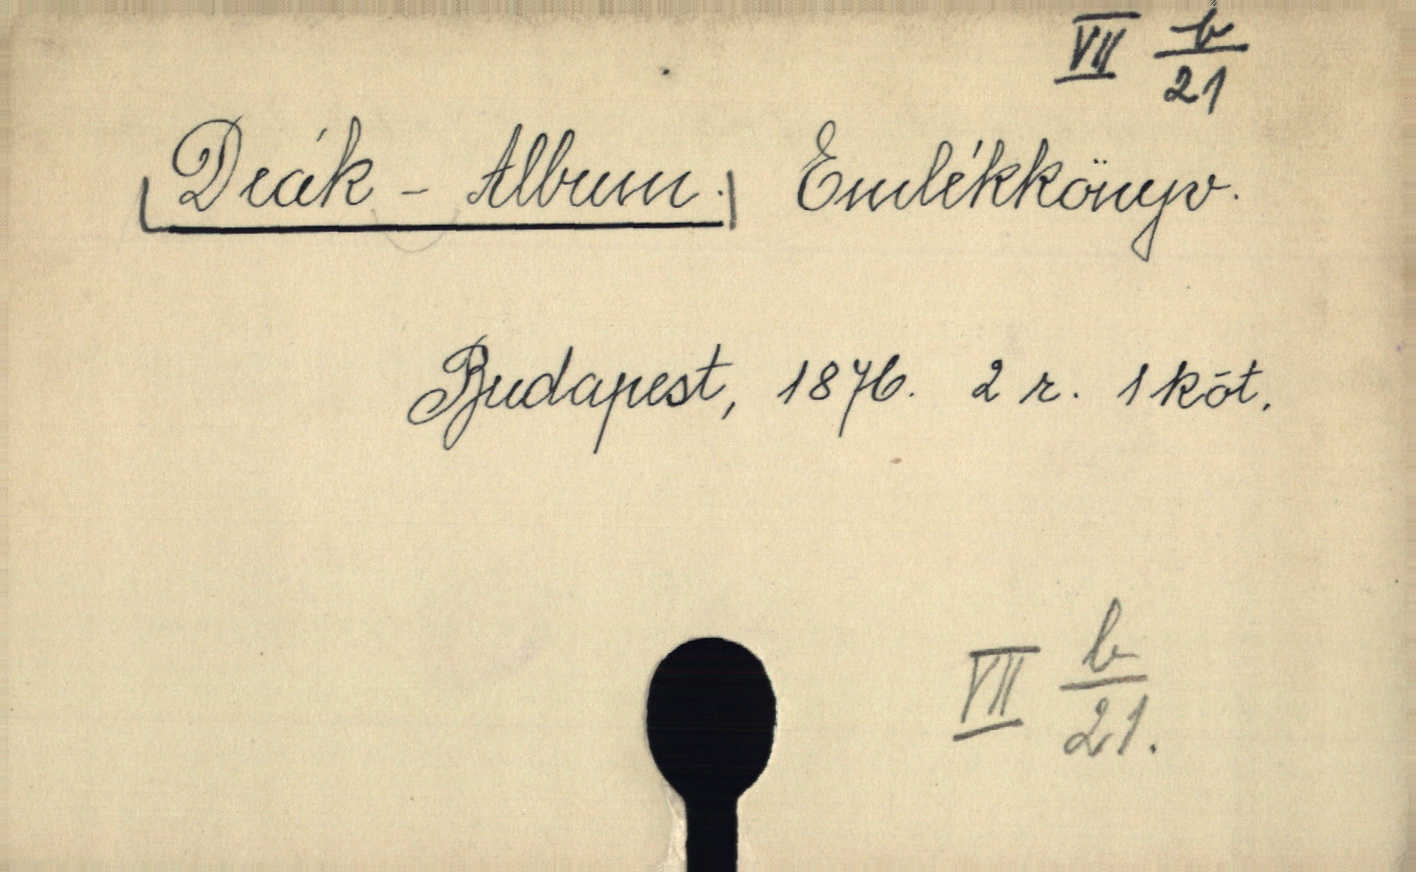 VII b/21
Deák - Album. Emlékkönyv.
Budapest, 1876. 2 r. 1 köt.
VII b/21.